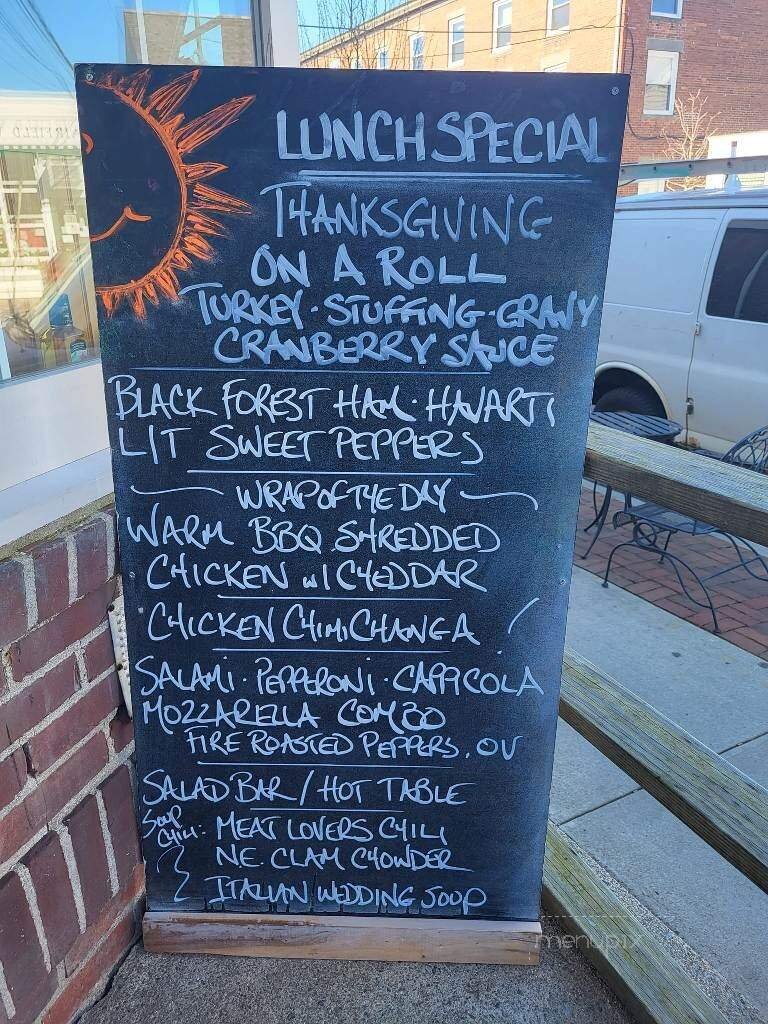 LUNCH SPECIAL
THANKSGIVING
ON A ROLL
TURKEY · STUFFING · GRAVY
CRANBERRY SAUCE
BLACK FOREST HAM · HAVARTI
L/T SWEET PEPPERS
WRAP OF THE DAY
WARM BBQ SHREDDED
CHICKEN w/ CHEDDAR
CHICKEN CHIMICHANGA!
SALAMI · PEPPERONI · CAPPICOLA
MOZZARELLA COMBO
FIRE ROASTED PEPPERS, OV
SALAD BAR / HOT TABLE
SOUP
CHILI: MEAT LOVERS CHILI
N.E. CLAM CHOWDER
ITALIAN WEDDING SOUP
menupix